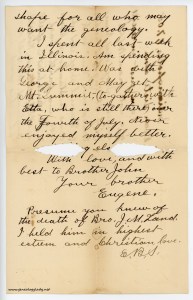 shape for all who may
want the geneology.
I spent all last week
in Illinois. Am spending
this at home. Was with
George and May
Mt. Summit, together with
Etta, who is still there, over
the Fourth of July. Never
enjoyed myself better.
With love, and with
best to Brother John
Your brother
Eugene.
Presume you knew of
the death of Bro. J. M. Zand.
I held him in highest
esteem and Christian love.